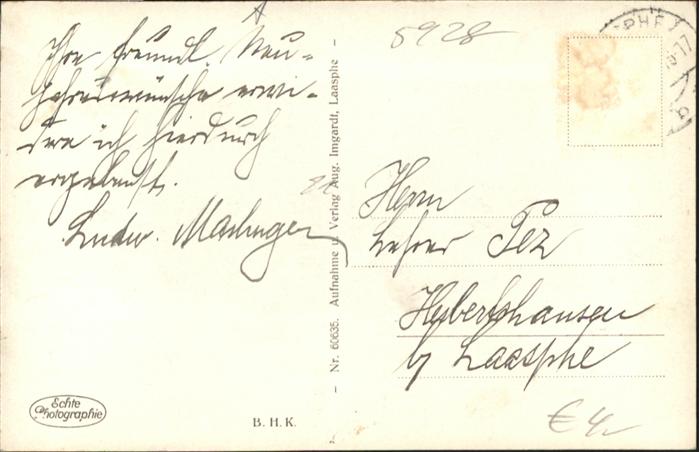 Ihre freundl. Neu-
jahreswünsche erwi-
dere ich hierdurch
ergebenst.
Ludw.
5928
Nr. 60635. Aufnahme u. Verlag Aug. Imgardt, Laasphe
Herrn
Lehrer Pez
Hesselbach
b/ Laasphe
Echte
Photographie
B. H. K.
€ 4,-